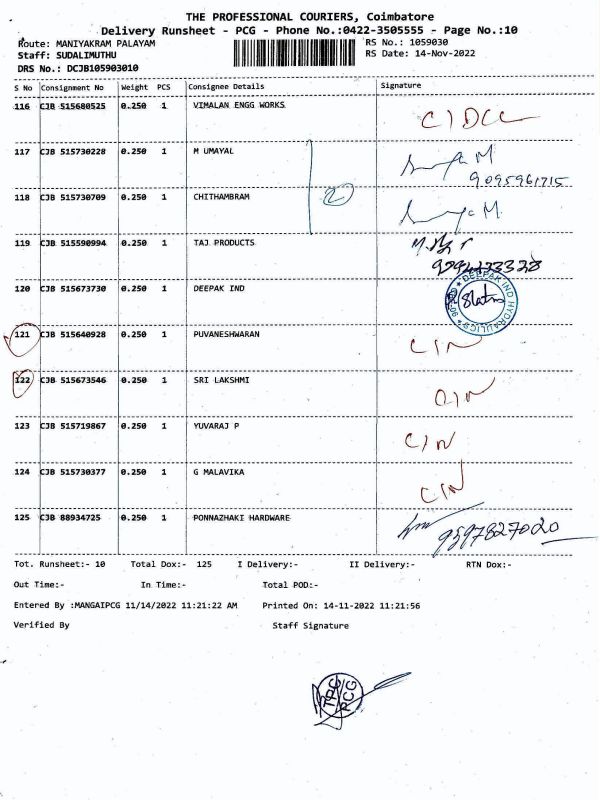 THE PROFESSIONAL COURIERS, Coimbatore
Delivery Runsheet - PCG - Phone No.:0422-3505555 - Page No.:10
Route: MANIYAKRAM PALAYAM RS No.: 1059030
Staff: SUDALIMUTHU RS Date: 14-Nov-2022
DRS No.: DCJB105903010
S No Consignment No Weight PCS Consignee Details Signature
116 CJB 515680525 0.250 1 VIMALAN ENGG WORKS
117 CJB 515730228 0.250 1 M UMAYAL M
9095961715
118 CJB 515730709 0.250 1 CHITHAMBRAM 2 M.
119 CJB 515590994 0.250 1 TAJ PRODUCTS
120 CJB 515673730 0.250 1 DEEPAK IND DEEPAK IND HYDRAULICS
121 CJB 515640928 0.250 1 PUVANESHWARAN CIN
122 CJB 515673546 0.250 1 SRI LAKSHMI CIN
123 CJB 515719867 0.250 1 YUVARAJ P CIN
124 CJB 515730377 0.250 1 G MALAVIKA CIN
125 CJB 88934725 0.250 1 PONNAZHAKI HARDWARE 9597827020
Tot. Runsheet:- 10 Total Dox:- 125 I Delivery:- II Delivery:- RTN Dox:-
Out Time:- In Time:- Total POD:-
Entered By :MANGAIPCG 11/14/2022 11:21:22 AM Printed On: 14-11-2022 11:21:56
Verified By Staff Signature
TPC
PCG